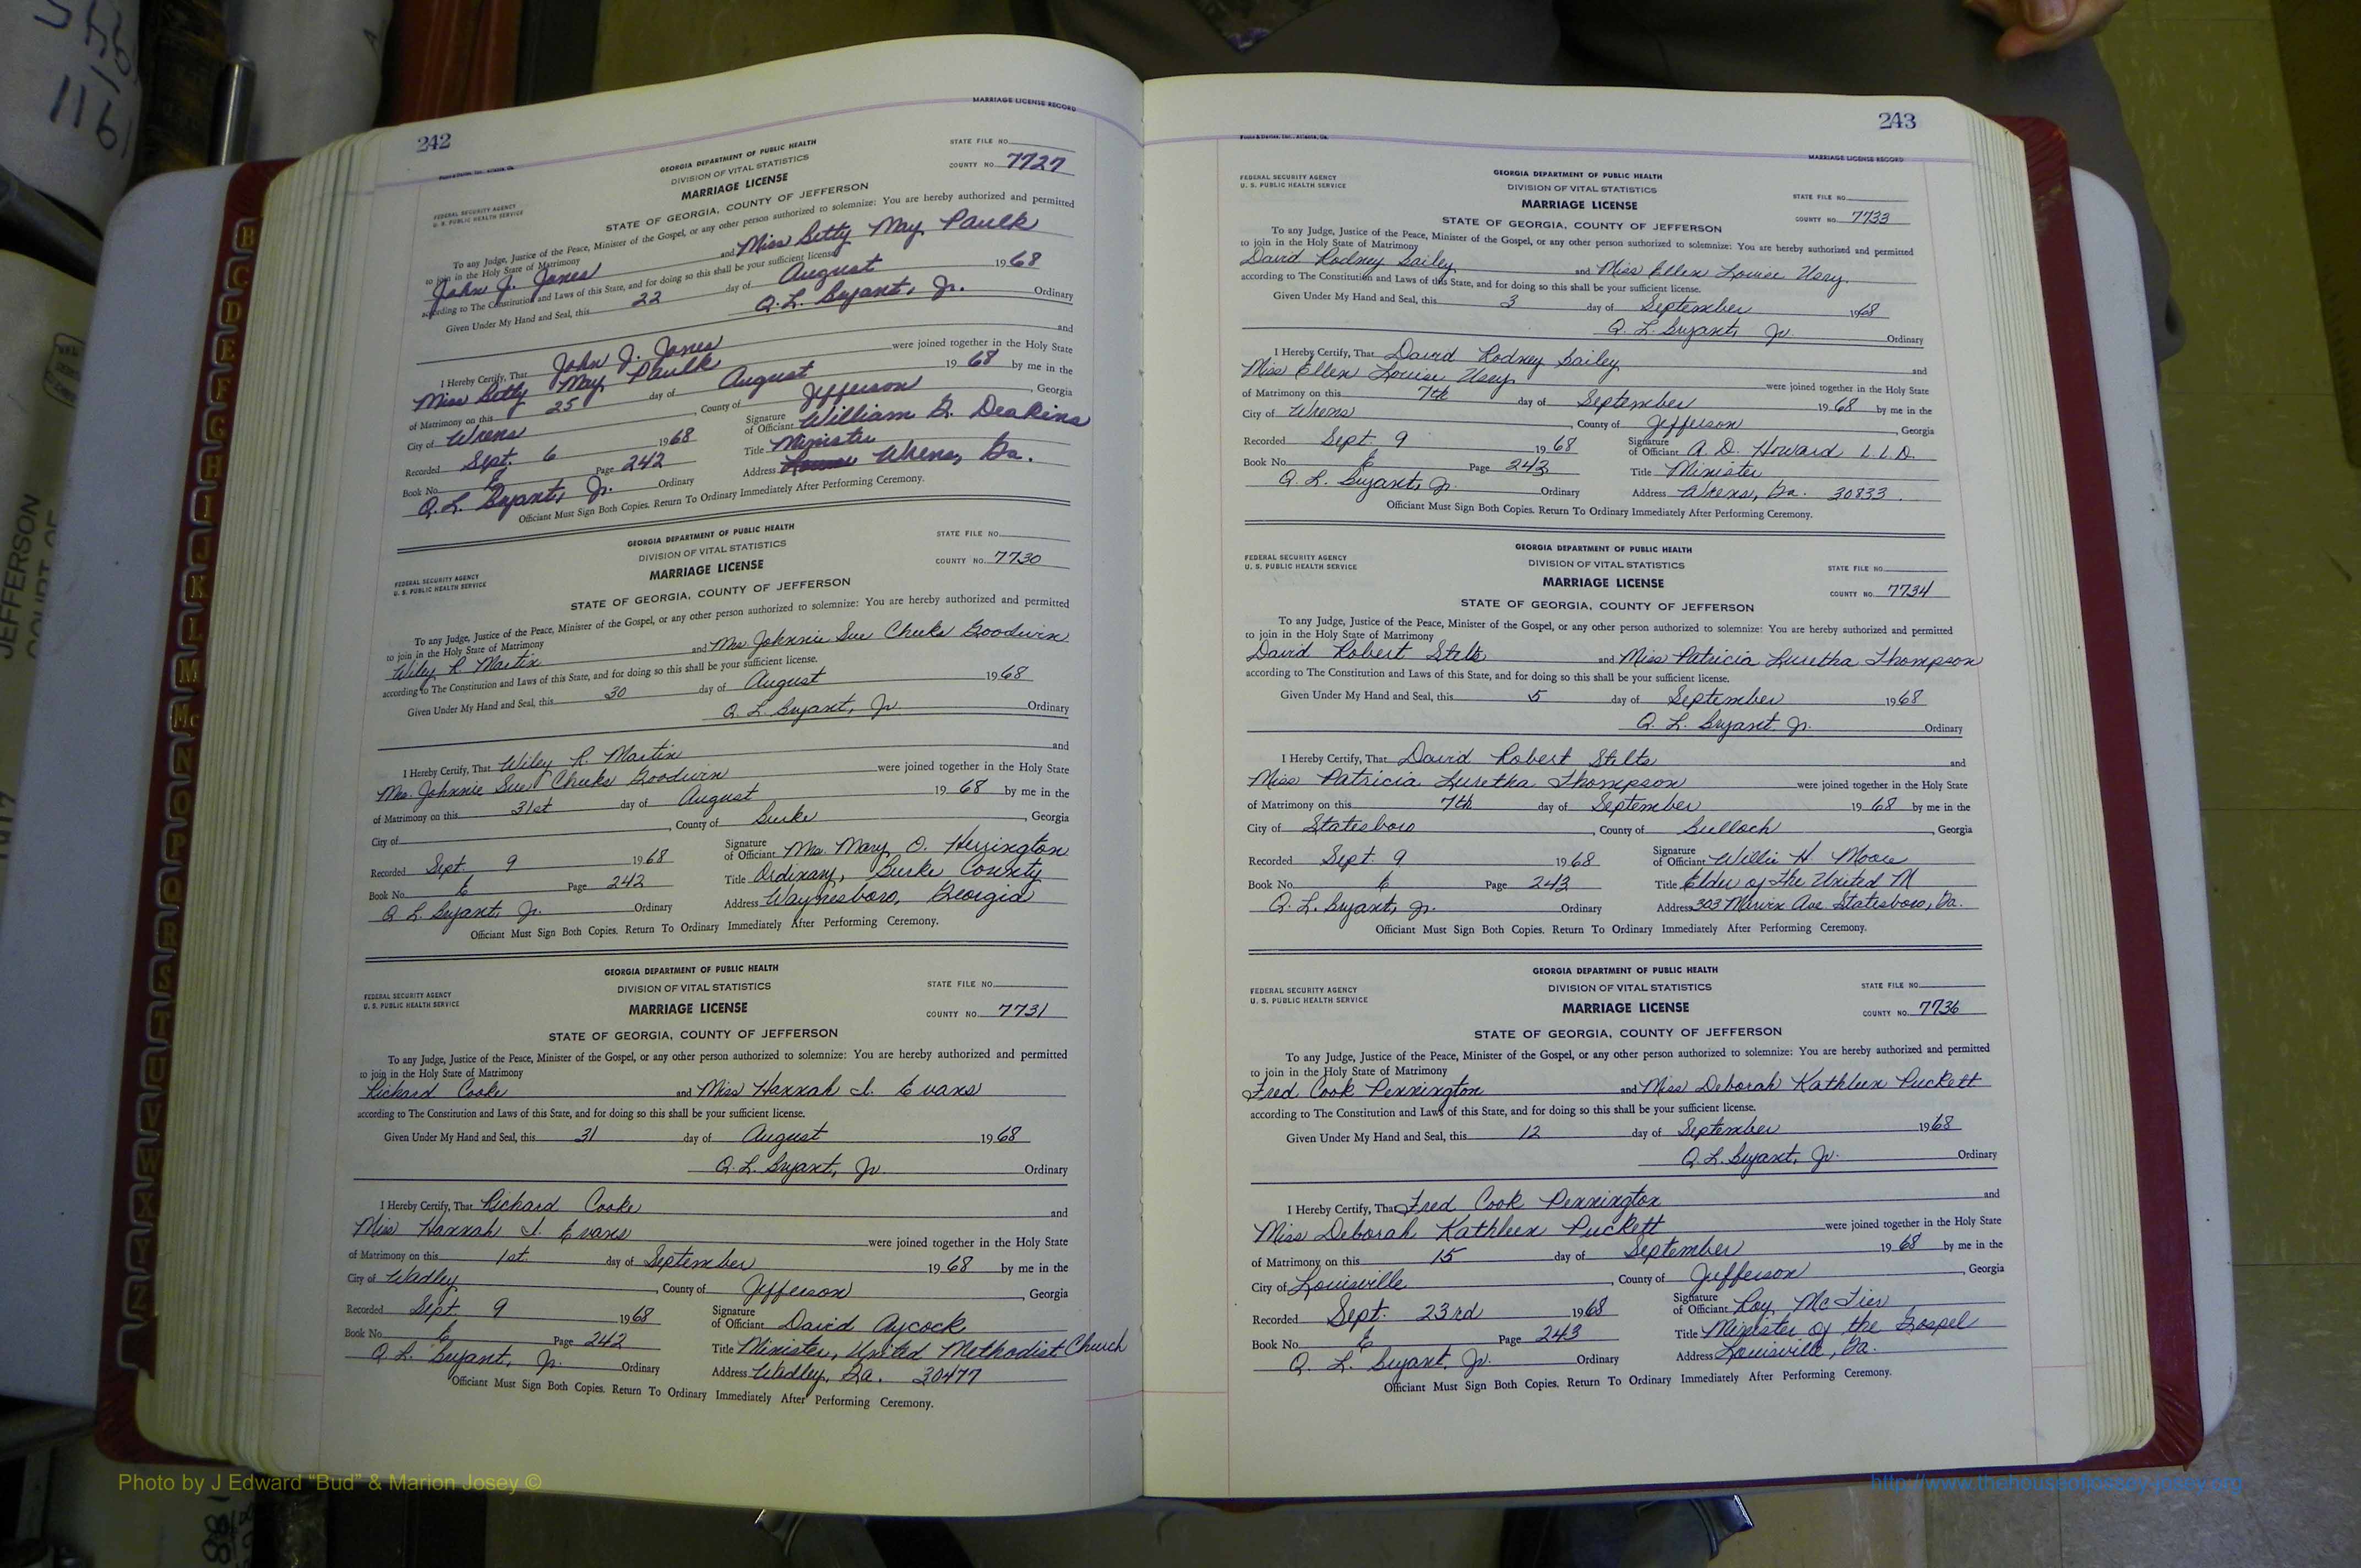 242
MARRIAGE LICENSE RECORD
Foote & Davies, Inc., Atlanta, Ga.
GEORGIA DEPARTMENT OF PUBLIC HEALTH
DIVISION OF VITAL STATISTICS
MARRIAGE LICENSE
STATE OF GEORGIA, COUNTY OF JEFFERSON
STATE FILE NO.
COUNTY NO. 7727
FEDERAL SECURITY AGENCY
U. S. PUBLIC HEALTH SERVICE
To any Judge, Justice of the Peace, Minister of the Gospel, or any other person authorized to solemnize: You are hereby authorized and permitted
to join in the Holy State of Matrimony
John J. Jones and Miss Betty May Paulk
according to The Constitution and Laws of this State, and for doing so this shall be your sufficient license.
Given Under My Hand and Seal, this 22 day of August 1968
Q. L. Bryant, Jr. Ordinary
I Hereby Certify, That John J. Jones and
Miss Betty May Paulk were joined together in the Holy State
of Matrimony on this 25 day of August 1968 by me in the
City of Wrens, County of Jefferson, Georgia
Recorded Sept. 6 1968 Signature of Officiant William G. Deakins
Book No. E Page 242 Title Minister
Q. L. Bryant, Jr. Ordinary Address Wrens, Ga.
Officiant Must Sign Both Copies. Return To Ordinary Immediately After Performing Ceremony.
GEORGIA DEPARTMENT OF PUBLIC HEALTH
DIVISION OF VITAL STATISTICS
MARRIAGE LICENSE
STATE OF GEORGIA, COUNTY OF JEFFERSON
STATE FILE NO.
COUNTY NO. 7730
FEDERAL SECURITY AGENCY
U. S. PUBLIC HEALTH SERVICE
To any Judge, Justice of the Peace, Minister of the Gospel, or any other person authorized to solemnize: You are hereby authorized and permitted
to join in the Holy State of Matrimony
Wiley R Martin and Mrs Johnnie Sue Cheeks Goodwin
according to The Constitution and Laws of this State, and for doing so this shall be your sufficient license.
Given Under My Hand and Seal, this 30 day of August 1968
Q. L. Bryant, Jr. Ordinary
I Hereby Certify, That Wiley R. Martin and
Mrs. Johnnie Sue Cheeks Goodwin were joined together in the Holy State
of Matrimony on this 31st day of August 1968 by me in the
City of , County of Burke, Georgia
Recorded Sept 9 1968 Signature of Officiant Mrs. Mary O. Herrington
Book No. E Page 242 Title Ordinary, Burke County
Q. L. Bryant, Jr. Ordinary Address Waynesboro, Georgia
Officiant Must Sign Both Copies. Return To Ordinary Immediately After Performing Ceremony.
GEORGIA DEPARTMENT OF PUBLIC HEALTH
DIVISION OF VITAL STATISTICS
MARRIAGE LICENSE
STATE OF GEORGIA, COUNTY OF JEFFERSON
STATE FILE NO.
COUNTY NO. 7731
FEDERAL SECURITY AGENCY
U. S. PUBLIC HEALTH SERVICE
To any Judge, Justice of the Peace, Minister of the Gospel, or any other person authorized to solemnize: You are hereby authorized and permitted
to join in the Holy State of Matrimony
Richard Cooke and Miss Hannah I. Evans
according to The Constitution and Laws of this State, and for doing so this shall be your sufficient license.
Given Under My Hand and Seal, this 31 day of August 1968
Q. L. Bryant, Jr. Ordinary
I Hereby Certify, That Richard Cooke and
Miss Hannah I. Evans were joined together in the Holy State
of Matrimony on this 1st. day of September 1968 by me in the
City of Wadley, County of Jefferson, Georgia
Recorded Sept. 9 1968 Signature of Officiant David Aycock
Book No. E Page 242 Title Minister, United Methodist Church
Q. L. Bryant, Jr. Ordinary Address Wadley, Ga. 30477
Officiant Must Sign Both Copies. Return To Ordinary Immediately After Performing Ceremony.
243
Foote & Davies, Inc., Atlanta, Ga.
MARRIAGE LICENSE RECORD
FEDERAL SECURITY AGENCY
U. S. PUBLIC HEALTH SERVICE
GEORGIA DEPARTMENT OF PUBLIC HEALTH
DIVISION OF VITAL STATISTICS
MARRIAGE LICENSE
STATE OF GEORGIA, COUNTY OF JEFFERSON
STATE FILE NO.
COUNTY NO. 7733
To any Judge, Justice of the Peace, Minister of the Gospel, or any other person authorized to solemnize: You are hereby authorized and permitted
to join in the Holy State of Matrimony
David Rodney Bailey and Miss Ellen Louise Usry
according to The Constitution and Laws of this State, and for doing so this shall be your sufficient license.
Given Under My Hand and Seal, this 3 day of September 1968
Q. L. Bryant, Jr. Ordinary
I Hereby Certify, That David Rodney Bailey and
Miss Ellen Louise Usry were joined together in the Holy State
of Matrimony on this 7th day of September 1968 by me in the
City of Wrens, County of Jefferson, Georgia
Recorded Sept 9 1968 Signature of Officiant A. D. Howard L.L.D.
Book No. E Page 243 Title Minister
Q. L. Bryant, Jr. Ordinary Address Wrens, Ga. 30833.
Officiant Must Sign Both Copies. Return To Ordinary Immediately After Performing Ceremony.
FEDERAL SECURITY AGENCY
U. S. PUBLIC HEALTH SERVICE
GEORGIA DEPARTMENT OF PUBLIC HEALTH
DIVISION OF VITAL STATISTICS
MARRIAGE LICENSE
STATE OF GEORGIA, COUNTY OF JEFFERSON
STATE FILE NO.
COUNTY NO. 7734
To any Judge, Justice of the Peace, Minister of the Gospel, or any other person authorized to solemnize: You are hereby authorized and permitted
to join in the Holy State of Matrimony
David Robert Stilts and Miss Patricia Luretha Thompson
according to The Constitution and Laws of this State, and for doing so this shall be your sufficient license.
Given Under My Hand and Seal, this 5 day of September 1968
Q. L. Bryant. Jr. Ordinary
I Hereby Certify, That David Robert Stilts and
Miss Patricia Luretha Thompson were joined together in the Holy State
of Matrimony on this 7th day of September 1968 by me in the
City of Statesboro, County of Bulloch, Georgia
Recorded Sept. 9 1968 Signature of Officiant Willie H. Moore
Book No. E Page 243 Title Elder of the United M
Q. L. Bryant, Jr. Ordinary Address 303 Marvin Ave Statesboro, Ga.
Officiant Must Sign Both Copies. Return To Ordinary Immediately After Performing Ceremony.
FEDERAL SECURITY AGENCY
U. S. PUBLIC HEALTH SERVICE
GEORGIA DEPARTMENT OF PUBLIC HEALTH
DIVISION OF VITAL STATISTICS
MARRIAGE LICENSE
STATE OF GEORGIA, COUNTY OF JEFFERSON
STATE FILE NO.
COUNTY NO. 7736
To any Judge, Justice of the Peace, Minister of the Gospel, or any other person authorized to solemnize: You are hereby authorized and permitted
to join in the Holy State of Matrimony
Fred Cook Pennington and Miss Deborah Kathleen Puckett
according to The Constitution and Laws of this State, and for doing so this shall be your sufficient license.
Given Under My Hand and Seal, this 12 day of September 1968
Q. L. Bryant, Jr. Ordinary
I Hereby Certify, That Fred Cook Pennington and
Miss Deborah Kathleen Puckett were joined together in the Holy State
of Matrimony on this 15 day of September 1968 by me in the
City of Louisville, County of Jefferson, Georgia
Recorded Sept. 23rd 1968 Signature of Officiant Roy McTier
Book No. E Page 243 Title Minister of the Gospel
Q. L. Bryant, Jr. Ordinary Address Louisville, Ga.
Officiant Must Sign Both Copies. Return To Ordinary Immediately After Performing Ceremony.
B
C
D
E
F
G
H
I
J
K
L
M
Mc
N
O
P
Q
R
S
T
U
V
W
X
Y
Z
JEFFERSON
COURT OF
Photo by J Edward “Bud” & Marion Josey ©
http://www.thehouseofjosady-josey.org